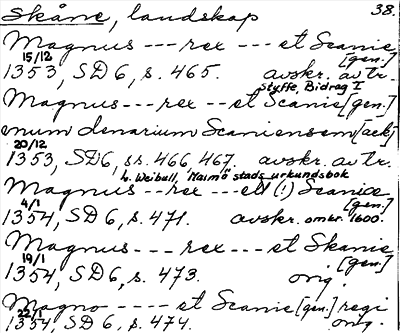 Skåne, landskap 38.
Magnus --- rex --- et Scanie [gen.]
15/12
1353, SD 6, s. 465. avskr. av tr.
Styffe, Bidrag I
Magnus --- rex -- et Scanie [gen.]
unum denarium Scaniensem [ack]
20/12
1353, SD6, ss. 466, 467. avskr. av tr.
L. Weibull, Malmö stads urkundsbok
Magnus -- rex --- ett (!) Scanie [gen.]
4/1
1354, SD 6, s. 471. avskr. omkr. 1600.
Magnus --- rex --- et Skanie [gen.]
19/1
1354, SD6, s. 473. orig.
Magno ---- et Scanie [gen.] regi
22/1
1354, SD 6, s. 474. orig.